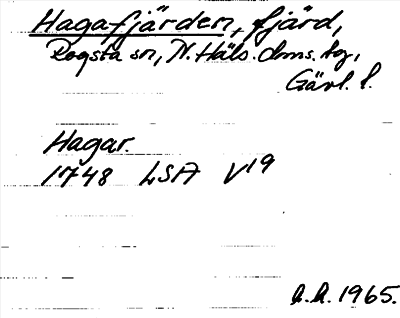 Hagafjärden, fjärd,
Rogsta sn, N. Häls. doms. tg,
Gävl. l.
Hagar.
1748 LSA V19
A.A. 1965.